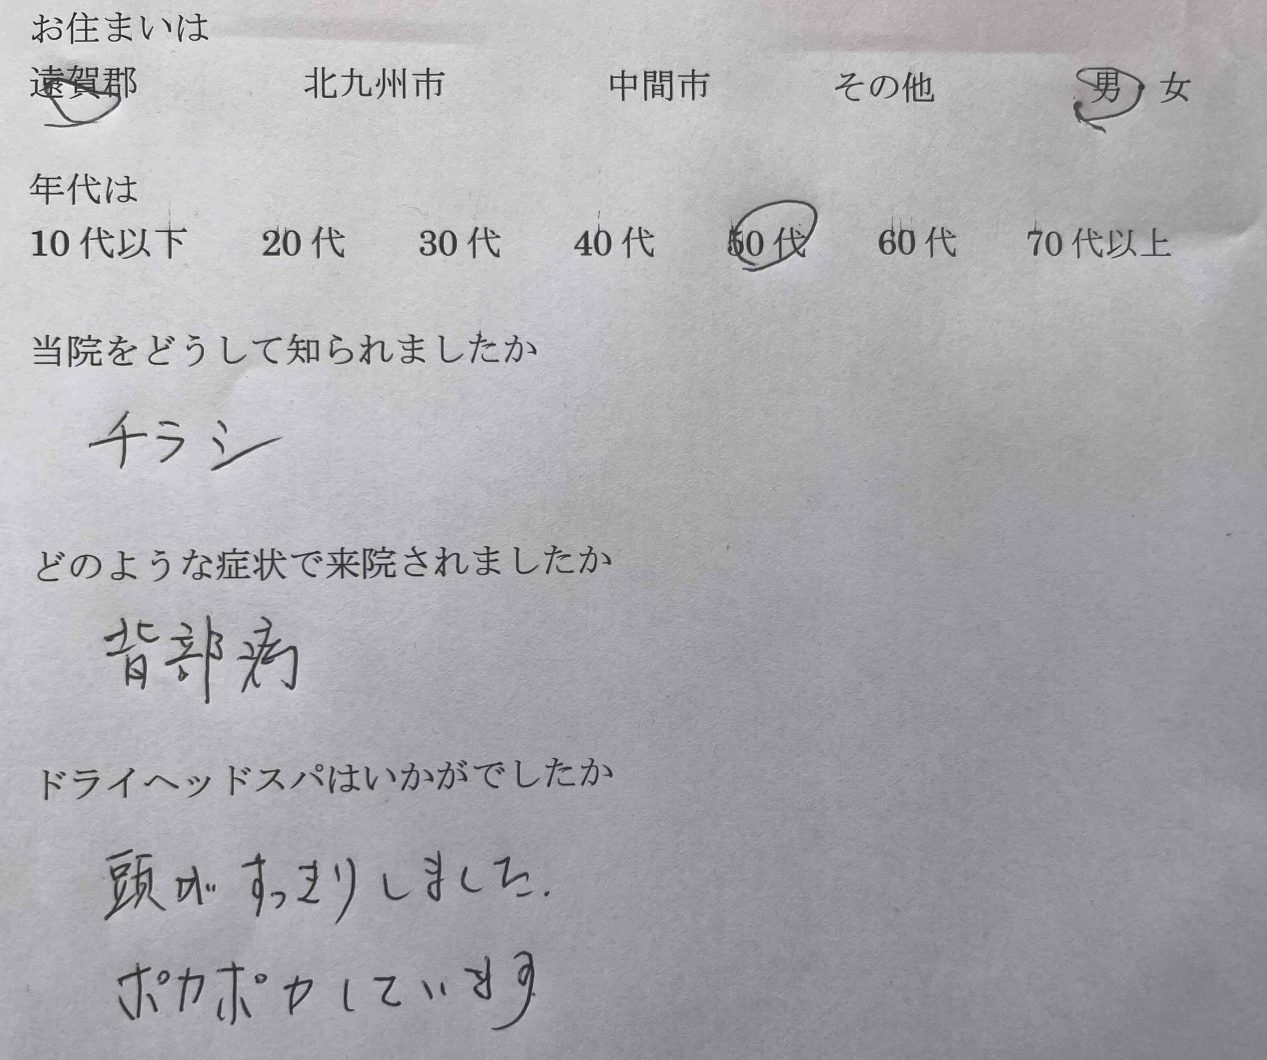 お住まいは
遠賀郡 北九州市 中間市 その他 男 女
年代は
10代以下 20代 30代 40代 50代 60代 70代以上
当院をどうして知られましたか
チラシ
どのような症状で来院されましたか
背部痛
ドライヘッドスパはいかがでしたか
頭がすっきりしました.
ポカポカしています